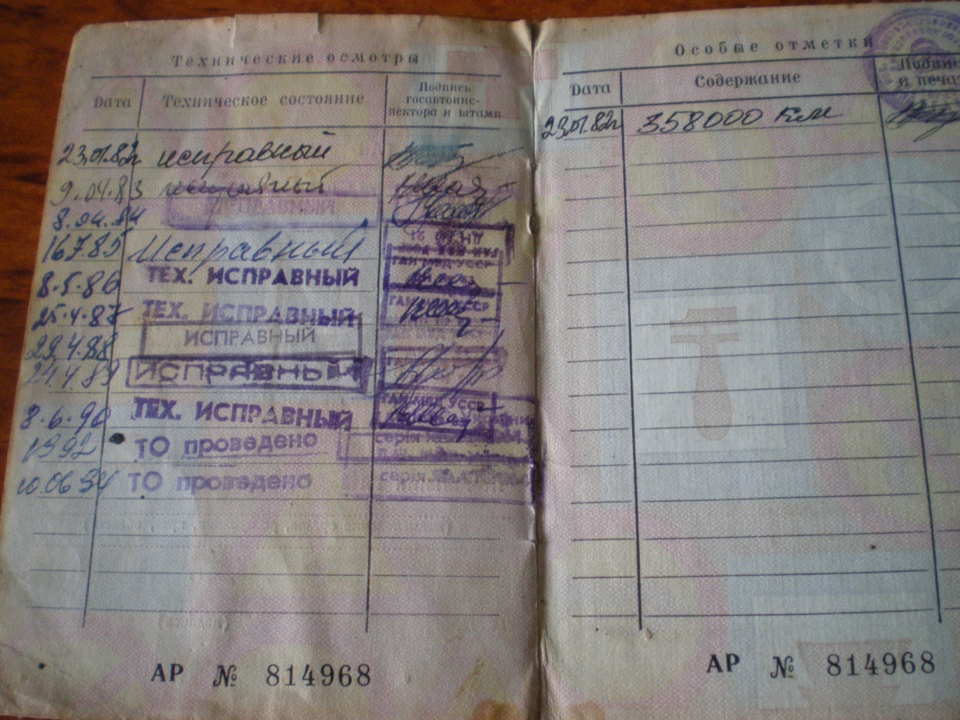 Технические осмотры
Дата Техническое состояние Подпись госавтоинс-
пектора и штамп
23.01.82г исправный
9.04.83 исправный
ИСПРАВНЫЙ
8.04.84
16.7.85 Исправный
8.5.86 ТЕХ. ИСПРАВНЫЙ ГАИ МВД УССР
25.4.87 ТЕХ. ИСПРАВНЫЙ ГАИ МВД УССР
29.4.88 ИСПРАВНЫЙ
21.4.89 ИСПРАВНЫЙ
8.6.90 ТЕХ. ИСПРАВНЫЙ ГАИ МВД УССР
1992 ТО проведено серія
10.06.94 ТО проведено серія
АР № 814968
Особые отметки
Дата Содержание Подпись
и печать
23.01.82г 358000 Км
АР № 814968